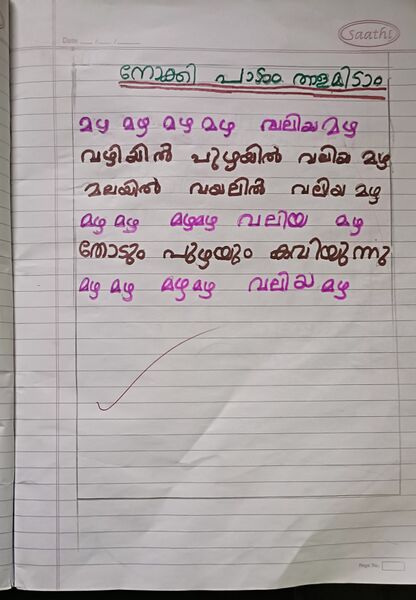 Saathi
Date
നോക്കി പാടാം താളമിടാം
മഴ മഴ മഴ മഴ വലിയ മഴ
വഴിയിൽ പുഴയിൽ വലിയ മഴ
മലയിൽ വയലിൽ വലിയ മഴ
മഴ മഴ മഴമഴ വലിയ മഴ
തോടും പുഴയും കവിയുന്നു
മഴ മഴ മഴ മഴ വലിയ മഴ
Page No.: